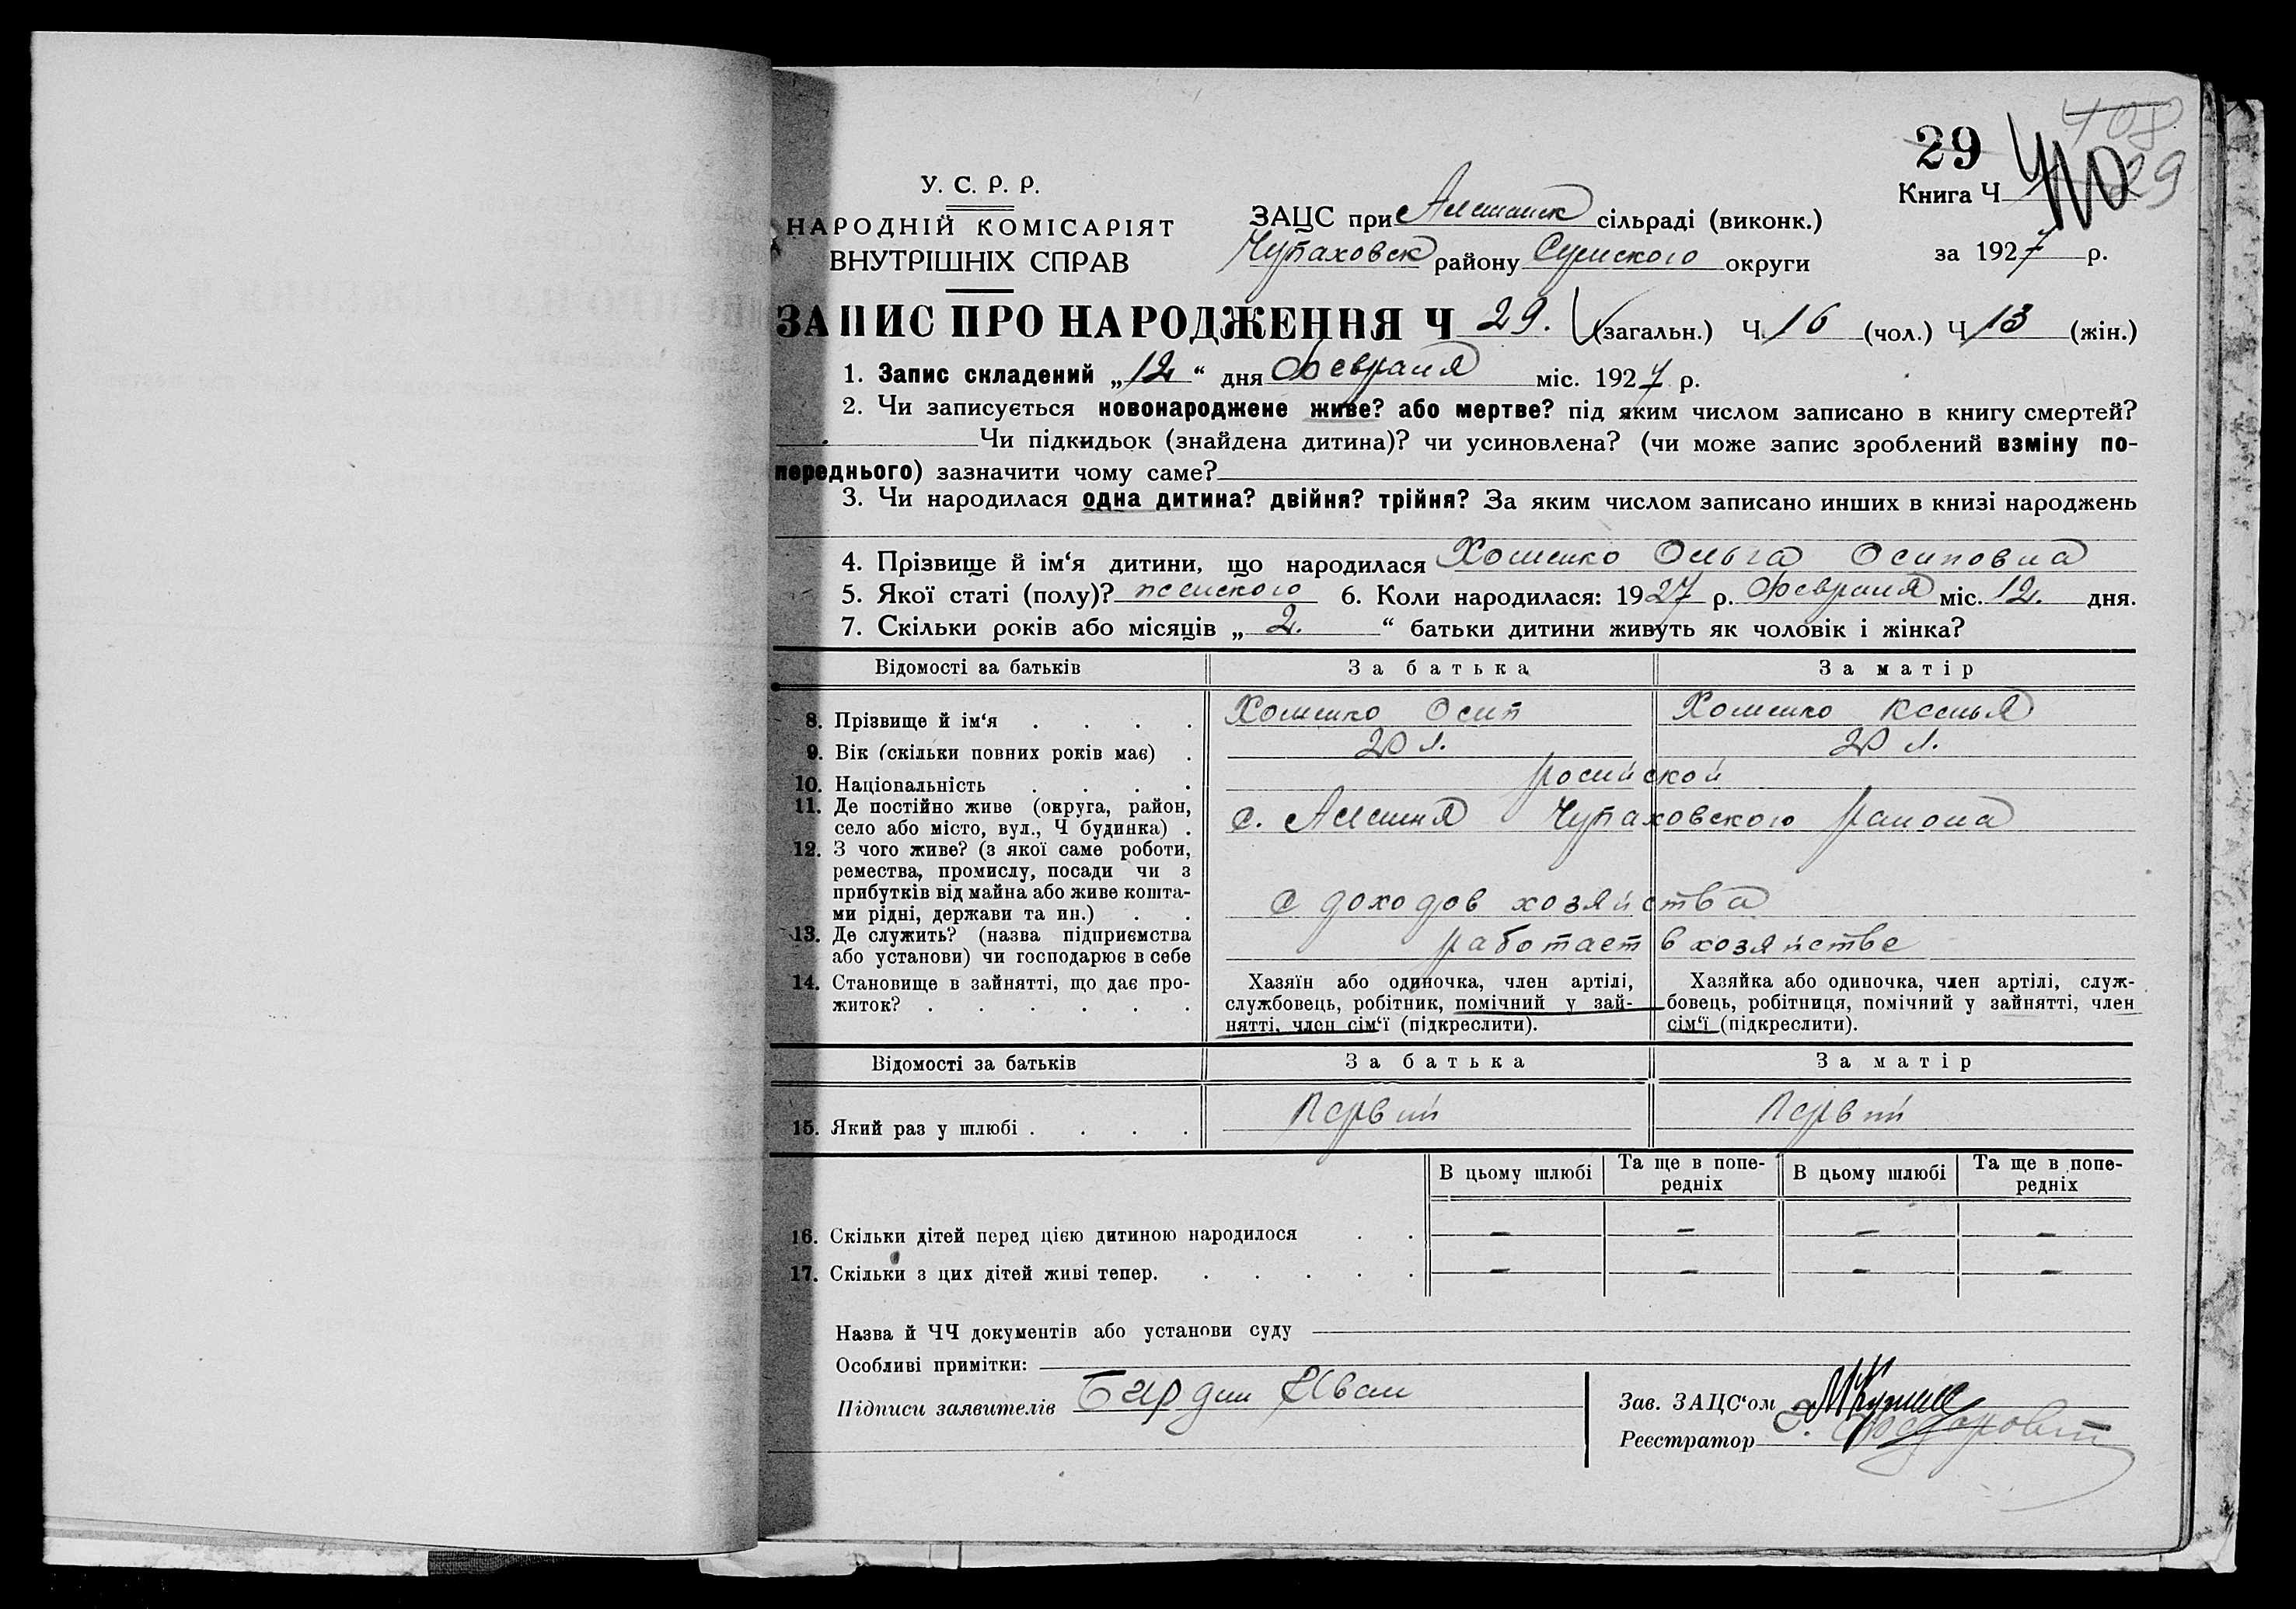 408
29 410 29
Книга Ч
за 1927 р.
У. С. Р. Р.
НАРОДНІЙ КОМІСАРІЯТ
ВНУТРІШНІХ СПРАВ
ЗАЦС при Алешанск сільраді (виконк.)
Чупаховск району Сумского округи
ЗАПИС ПРО НАРОДЖЕННЯ Ч 29. (загальн.) Ч 16 (чол.) Ч 13 (жін.)
1. Запис складений „12“ дня Февраля міс. 1927 р.
2. Чи записується новонароджене живе? або мертве? під яким числом записано в книгу смертей?
Чи підкидьок (знайдена дитина)? чи усиновлена? (чи може запис зроблений взміну по-
переднього) зазначити чому саме?
3. Чи народилася одна дитина? двійня? трійня? За яким числом записано инших в книзі народжень
4. Прізвище й ім‘я дитини, що народилася Хоменко Ольга Осиповна
5. Якої статі (полу)? женского 6. Коли народилася: 1927 р. Февраля міс. 12. дня.
7. Скільки років або місяців „ 2. “ батьки дитини живуть як чоловік і жінка?
Відомості за батьків За батька За матір
8. Прізвище й ім‘я . . . . Хоменко Осип Хоменко Ксенья
9. Вік (скільки повних років має) . 20 л. 20 л.
10. Національність . . . . росийской
11. Де постійно живе (округа, район,
село або місто, вул., Ч будинка) . с. Алешня Чупаховского раиона
12. З чого живе? (з якої саме роботи,
ремества, промислу, посади чи з
прибутків від майна або живе кошта-
ми рідні, держави та ин.) . . с доходов хозяйства
13. Де служить? (назва підприємства
або установи) чи господарює в себе работает в хозяйстве
14. Становище в зайнятті, що дає про-
житок? . . . . . .
Хазяїн або одиночка, член артілі,
службовець, робітник, помічний у зай-
нятті, член сім‘ї (підкреслити).
Хазяйка або одиночка, член артілі, служ-
бовець, робітниця, помічний у зайнятті, член
сім‘ї (підкреслити).
Відомості за батьків За батька За матір
15. Який раз у шлюбі . . . . Первий Первий
В цьому шлюбі Та ще в попе-
редніх В цьому шлюбі Та ще в попе-
редніх
16. Скільки дітей перед цією дитиною народилося . . – – – –
17. Скільки з цих дітей живі тепер. . . . . . – – – –
Назва й ЧЧ документів або установи суду
Особливі примітки:
Підписи заявителів Иван
Зав. ЗАЦС‘ом
Реєстратор